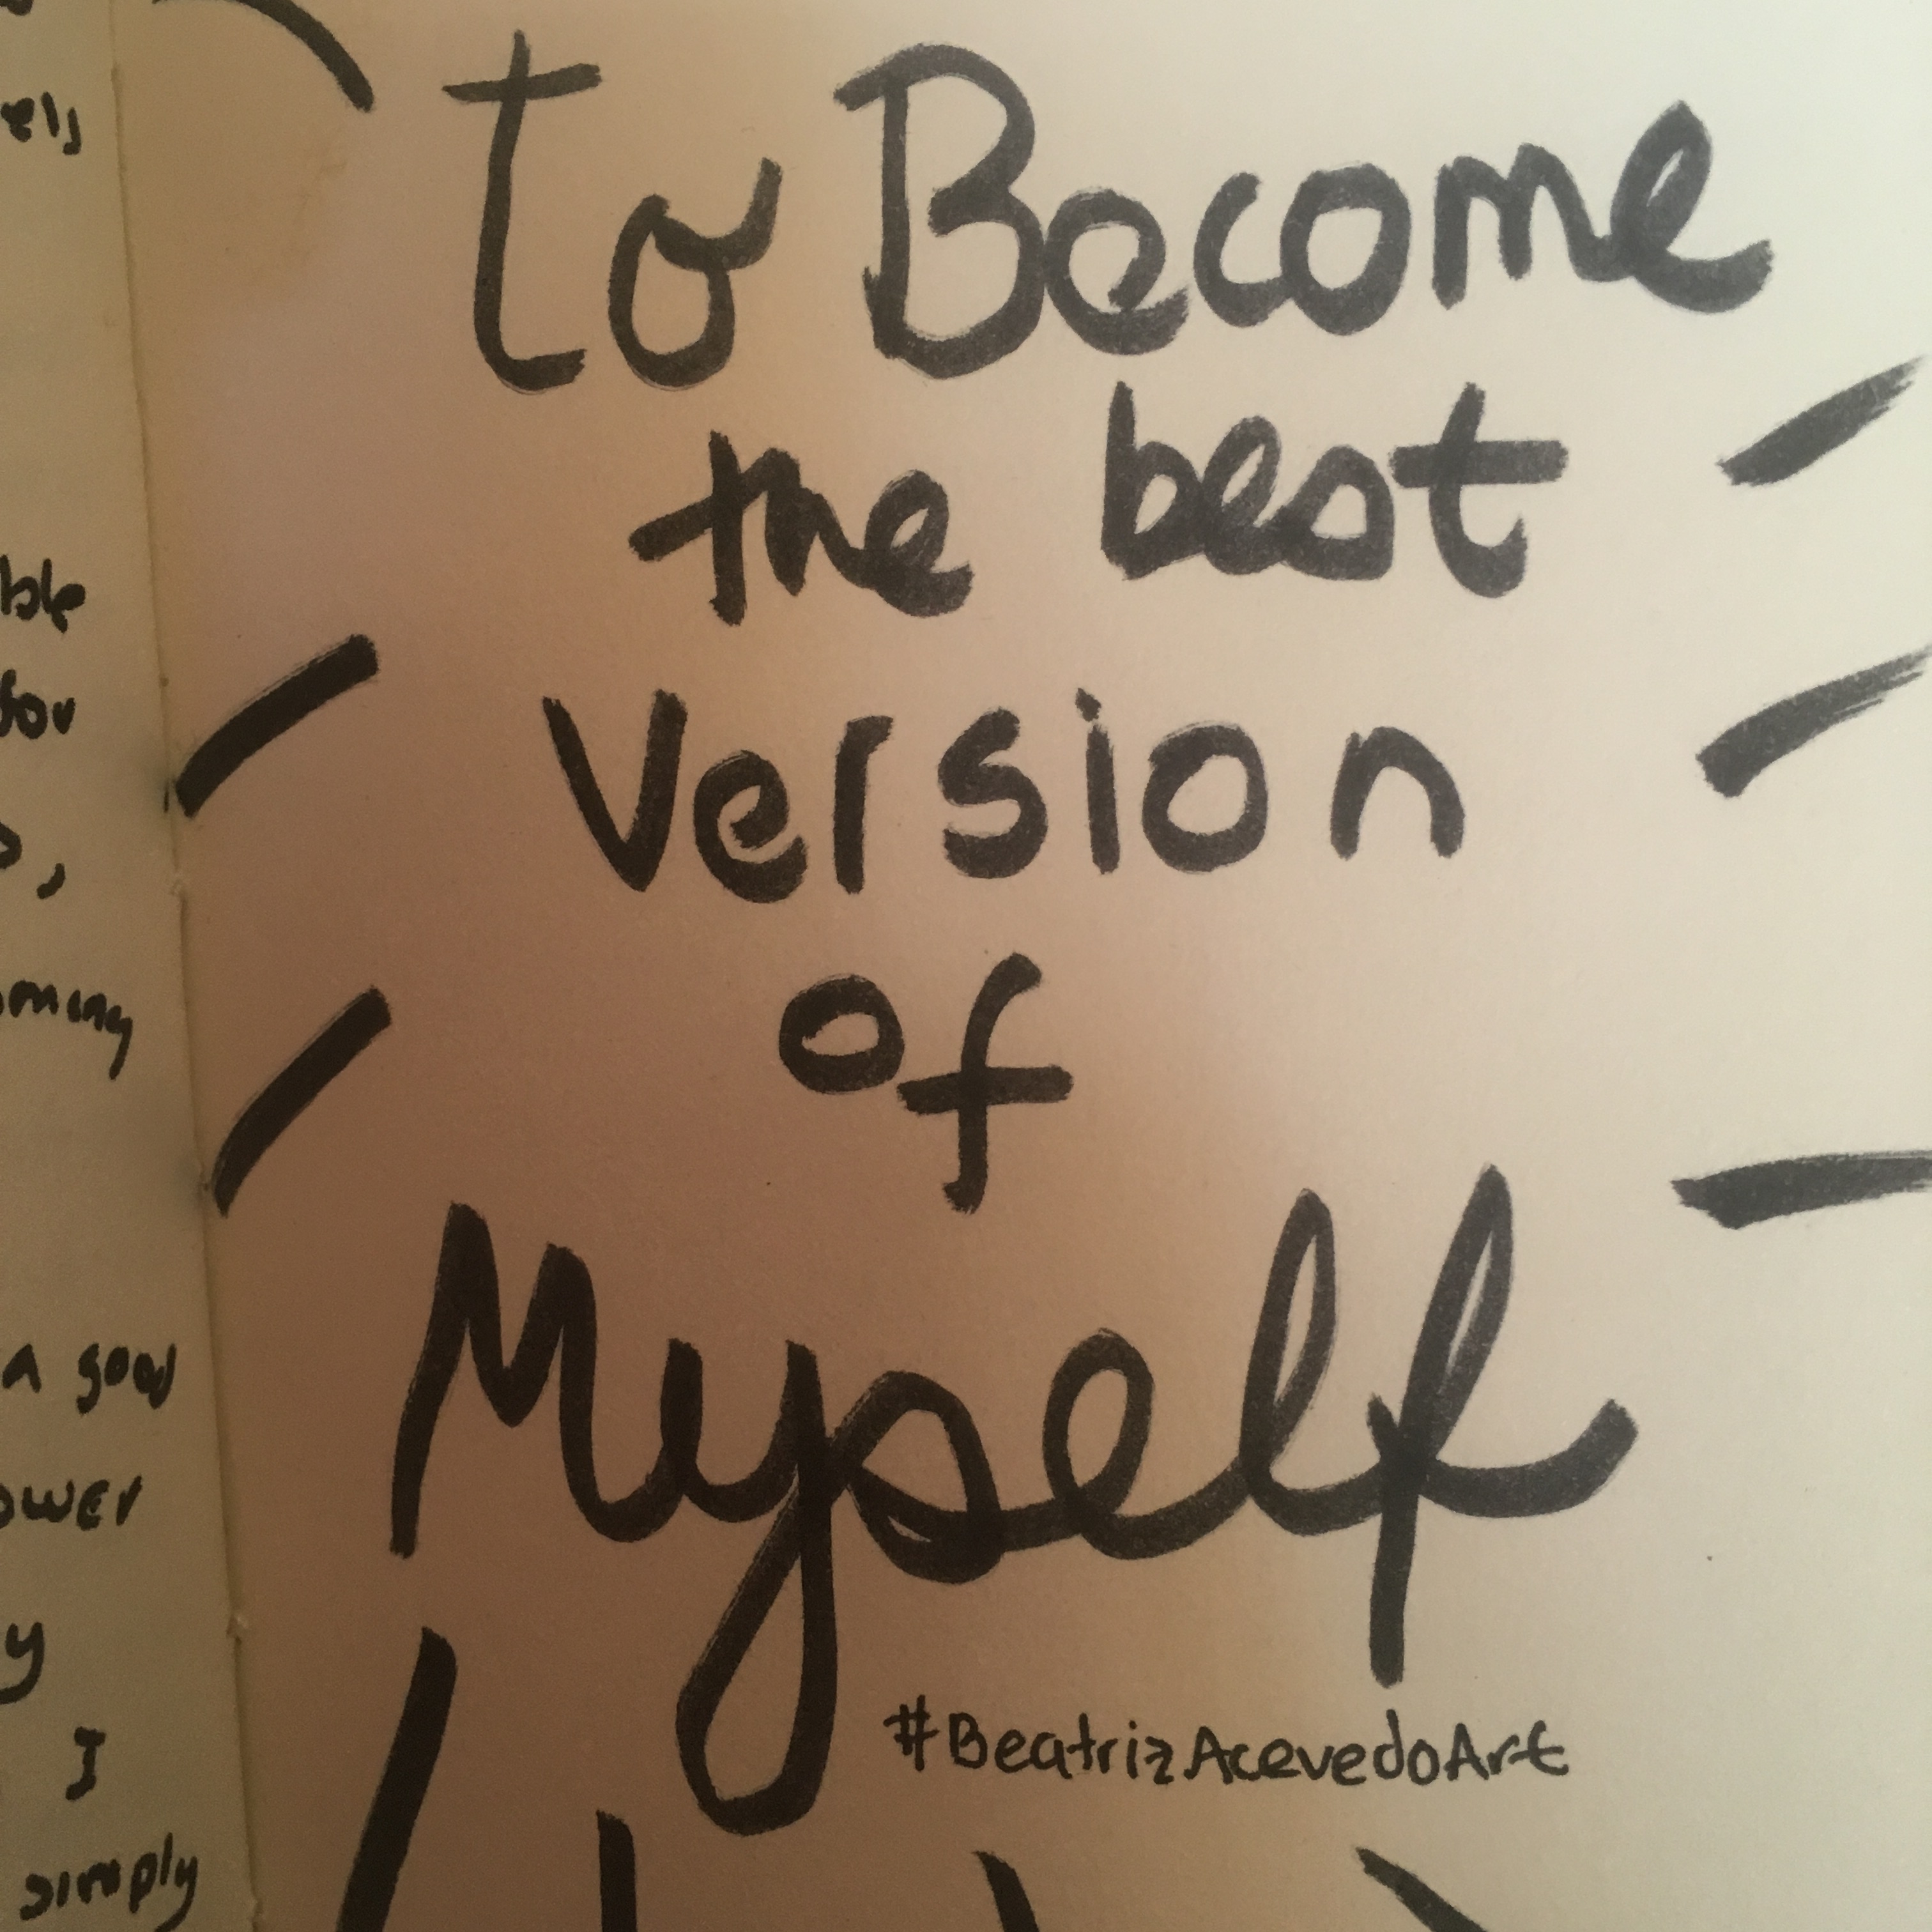 ble
for
oming
a good
ower
y
I
simply
to Become
the best
Version
of
Myself
#BeatrizAcevedoArt